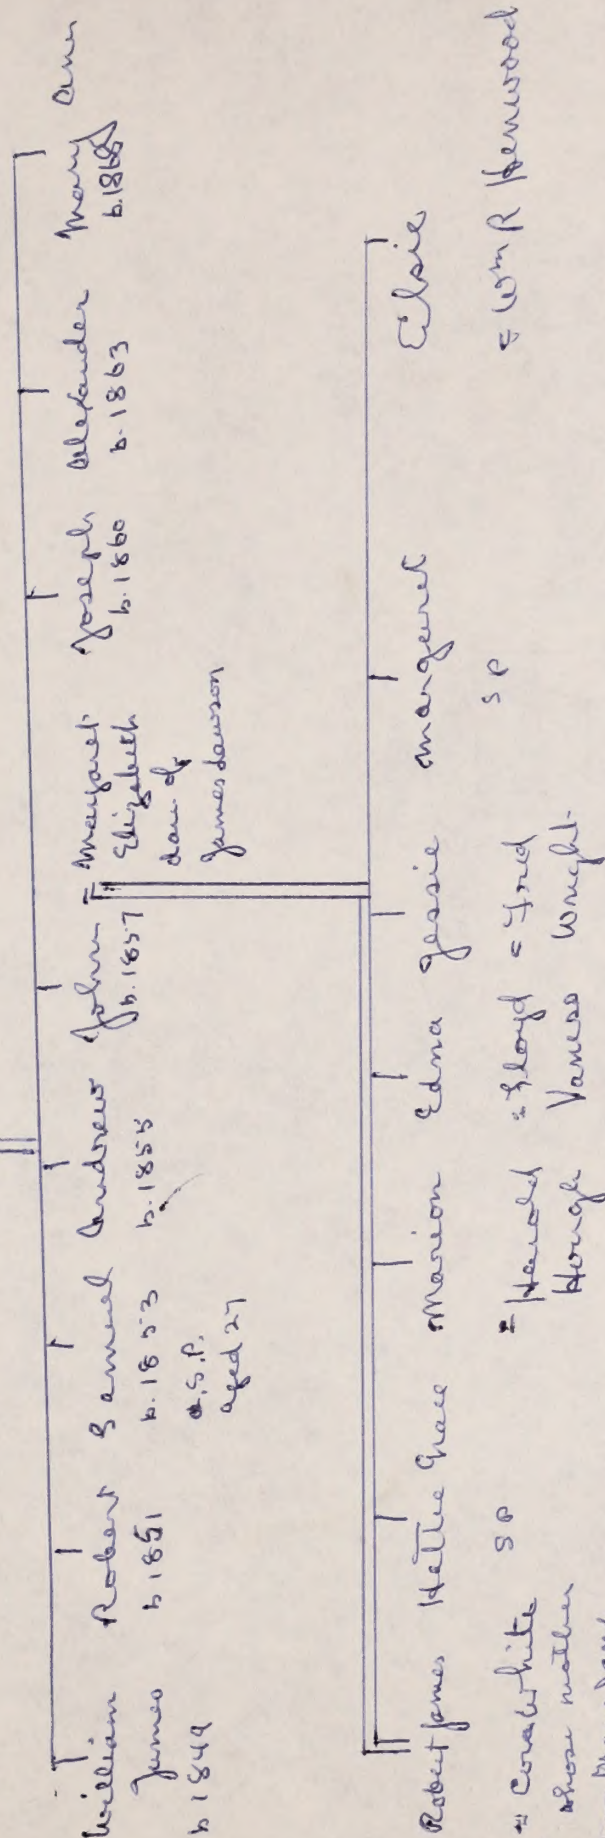 William
James
b 1849
Robert
b 1851
Samuel
b. 1853
d.S.P.
aged 27
Andrew
b. 1855
John
b. 1857
= Margaret
Elizabeth
dau. of
James Lawson
Joseph
b. 1860
Alexander
b. 1863
Mary Ann
b. 1868
Robert James
= Cora White
whose mother
Hettie Grace
S P
Marion
= Harold
Hough
Edna
= Floyd
Vaness
Jessie
= Fred
Wright
Margaret
S P
Elsie
= Wm R Henwood